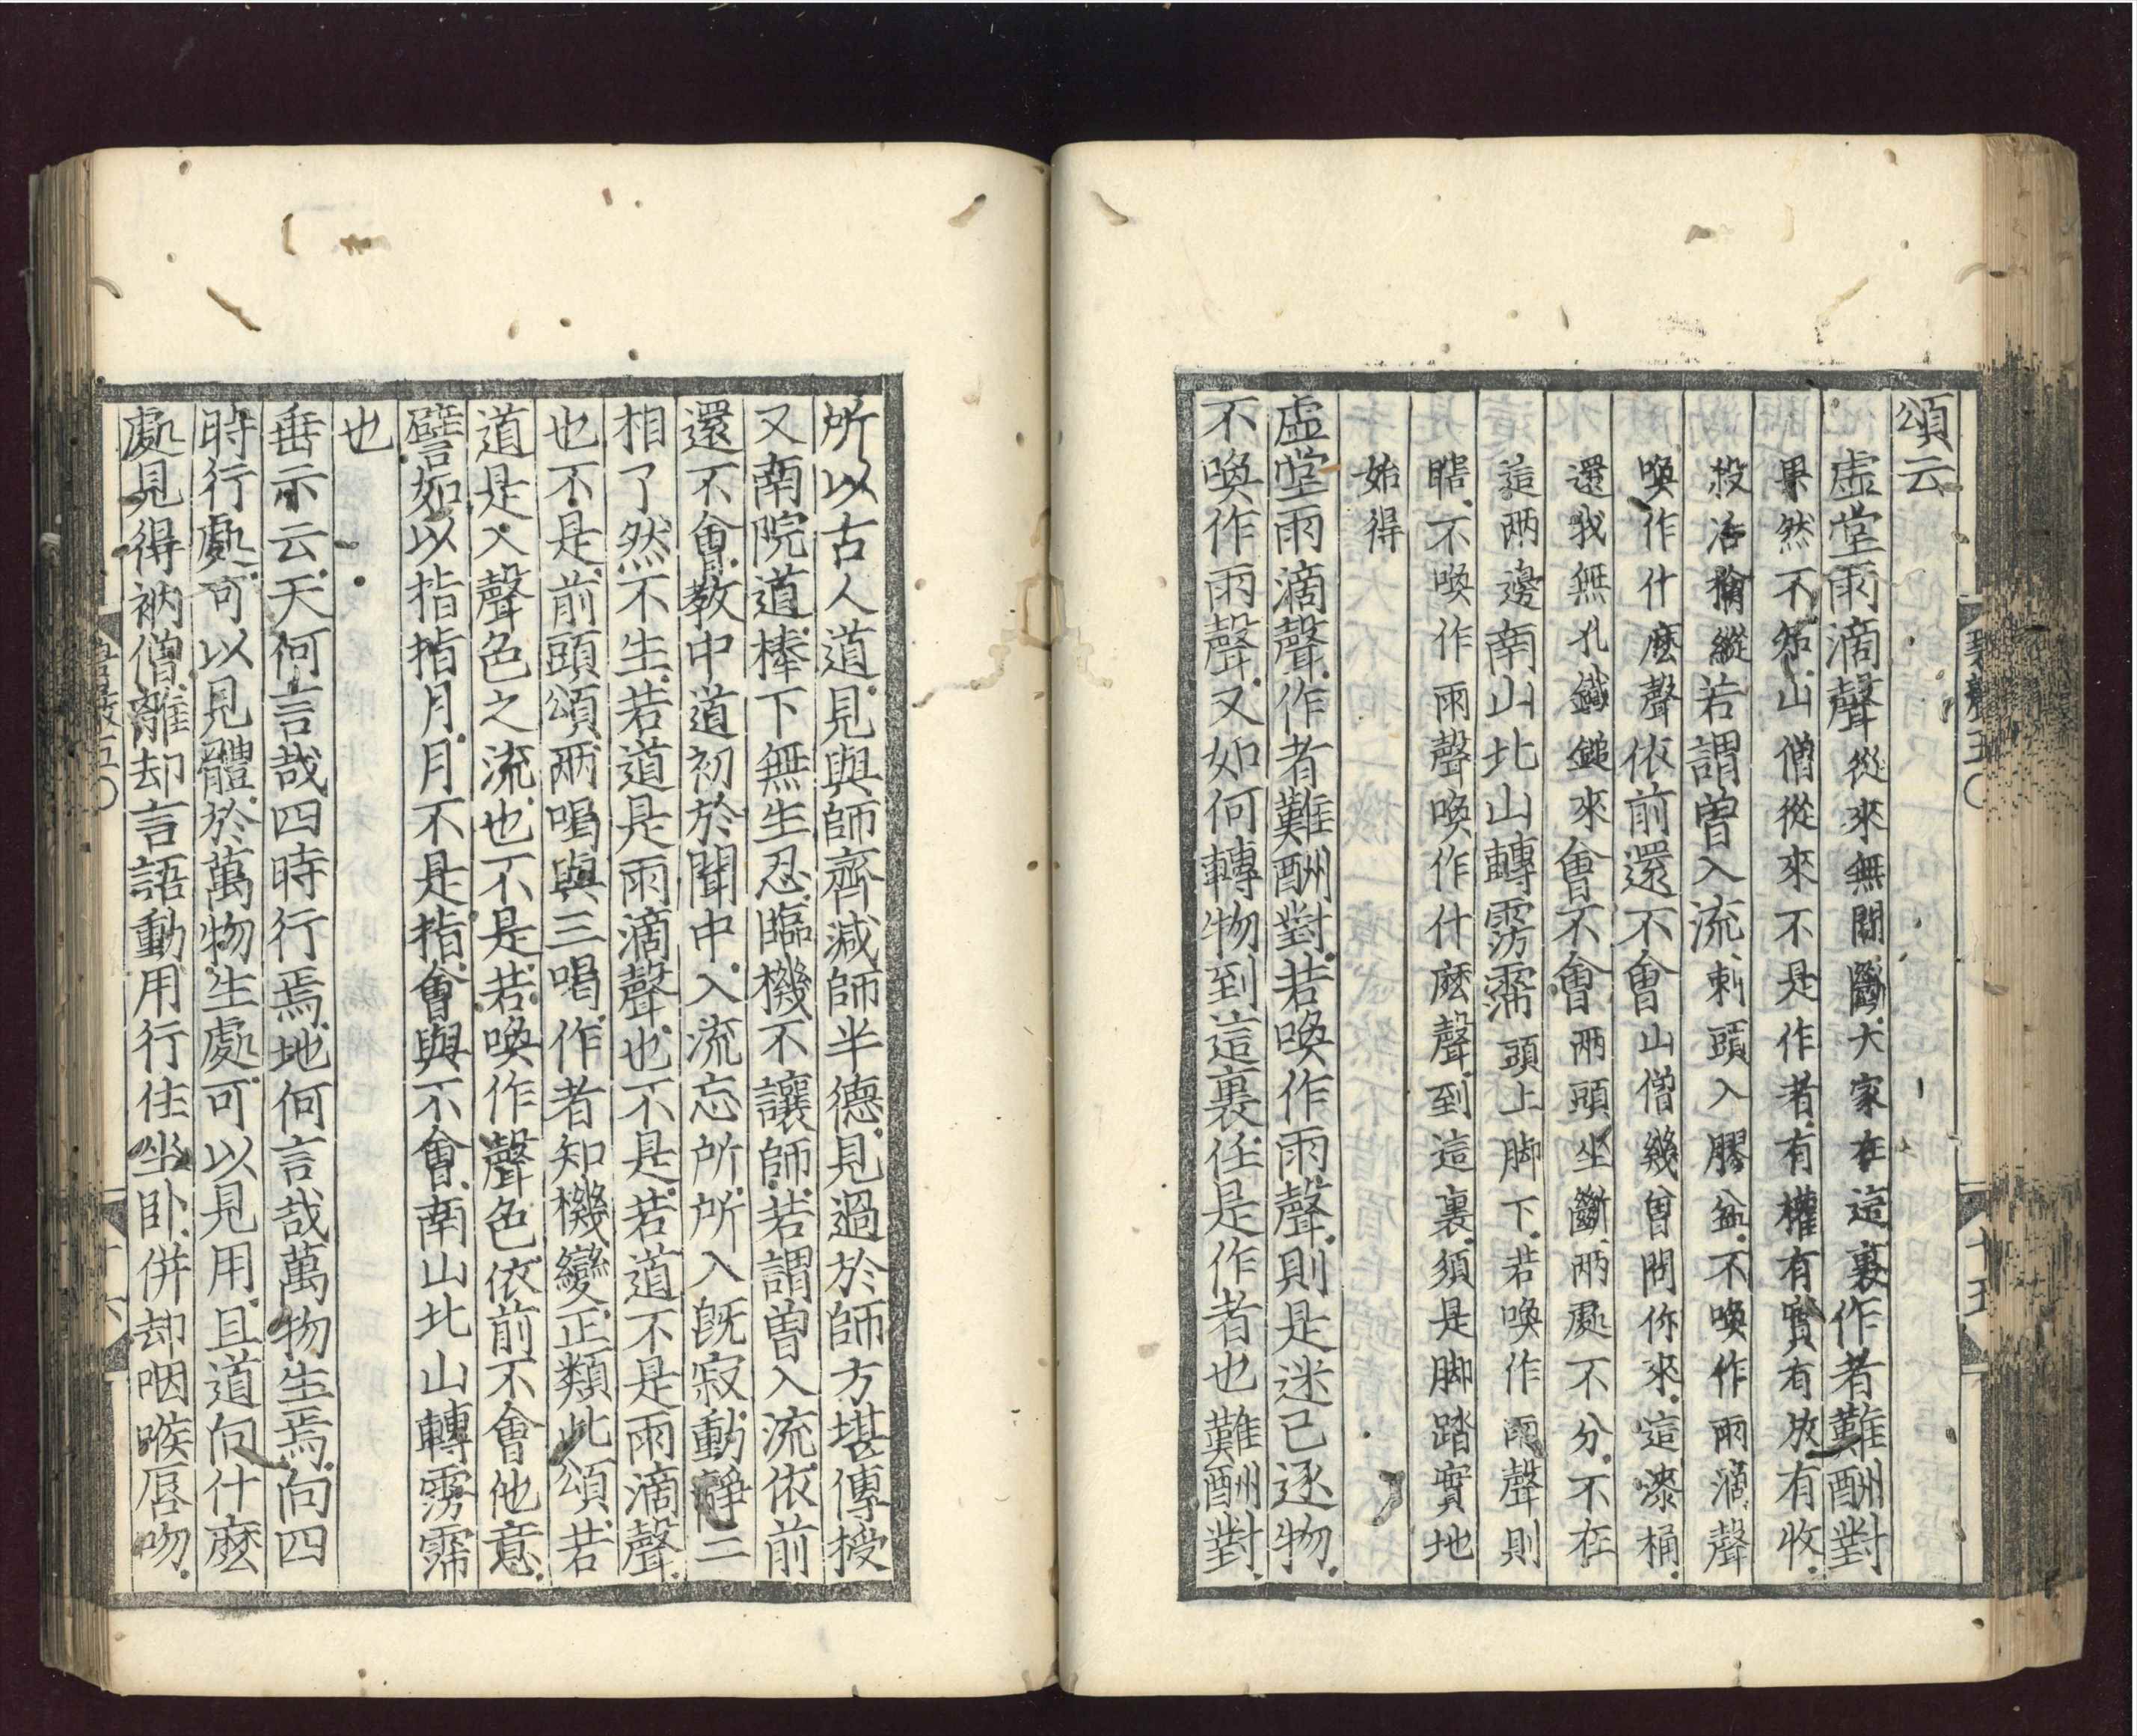 頌云
虛堂雨滴聲從來無間斷大家在這裏作者難酬對
果然不知山僧從來不是作者有權有實有放有收
殺活擒縱若謂曾入流刺頭入膠盆不喚作雨滴聲
喚作什麽聲依前還不會山僧幾曾問你來這漆桶
還我無孔鐵鎚來會不會兩頭坐斷兩處不分不在
這兩邊南山北山轉霶霈頭上脚下若喚作雨聲則
瞎不喚作雨聲喚作什麽聲到這裏須是脚踏實地
始得
虛堂雨滴聲作者難酬對若喚作雨聲則是迷己逐物
不喚作雨聲又如何轉物到這裏任是作者也難酬對
十五
所以古人道見與師齊減師半德見過於師方堪傳授
又南院道棒下無生忍臨機不讓師若謂曾入流依前
還不會教中道初於聞中入流忘所所入旣寂動靜二
相了然不生若道是雨滴聲也不是若道不是雨滴聲
也不是前頭頌兩喝與三喝作者知機變正類此頌若
道是入聲色之流也不是若喚作聲色依前不會他意
譬如以指指月月不是指會與不會南山北山轉霶霈
也
垂示云天何言哉四時行焉地何言哉萬物生焉向四
時行處可以見體於萬物生處可以見用且道向什麽
處見得衲僧離却言語動用行住坐臥併却咽喉唇吻